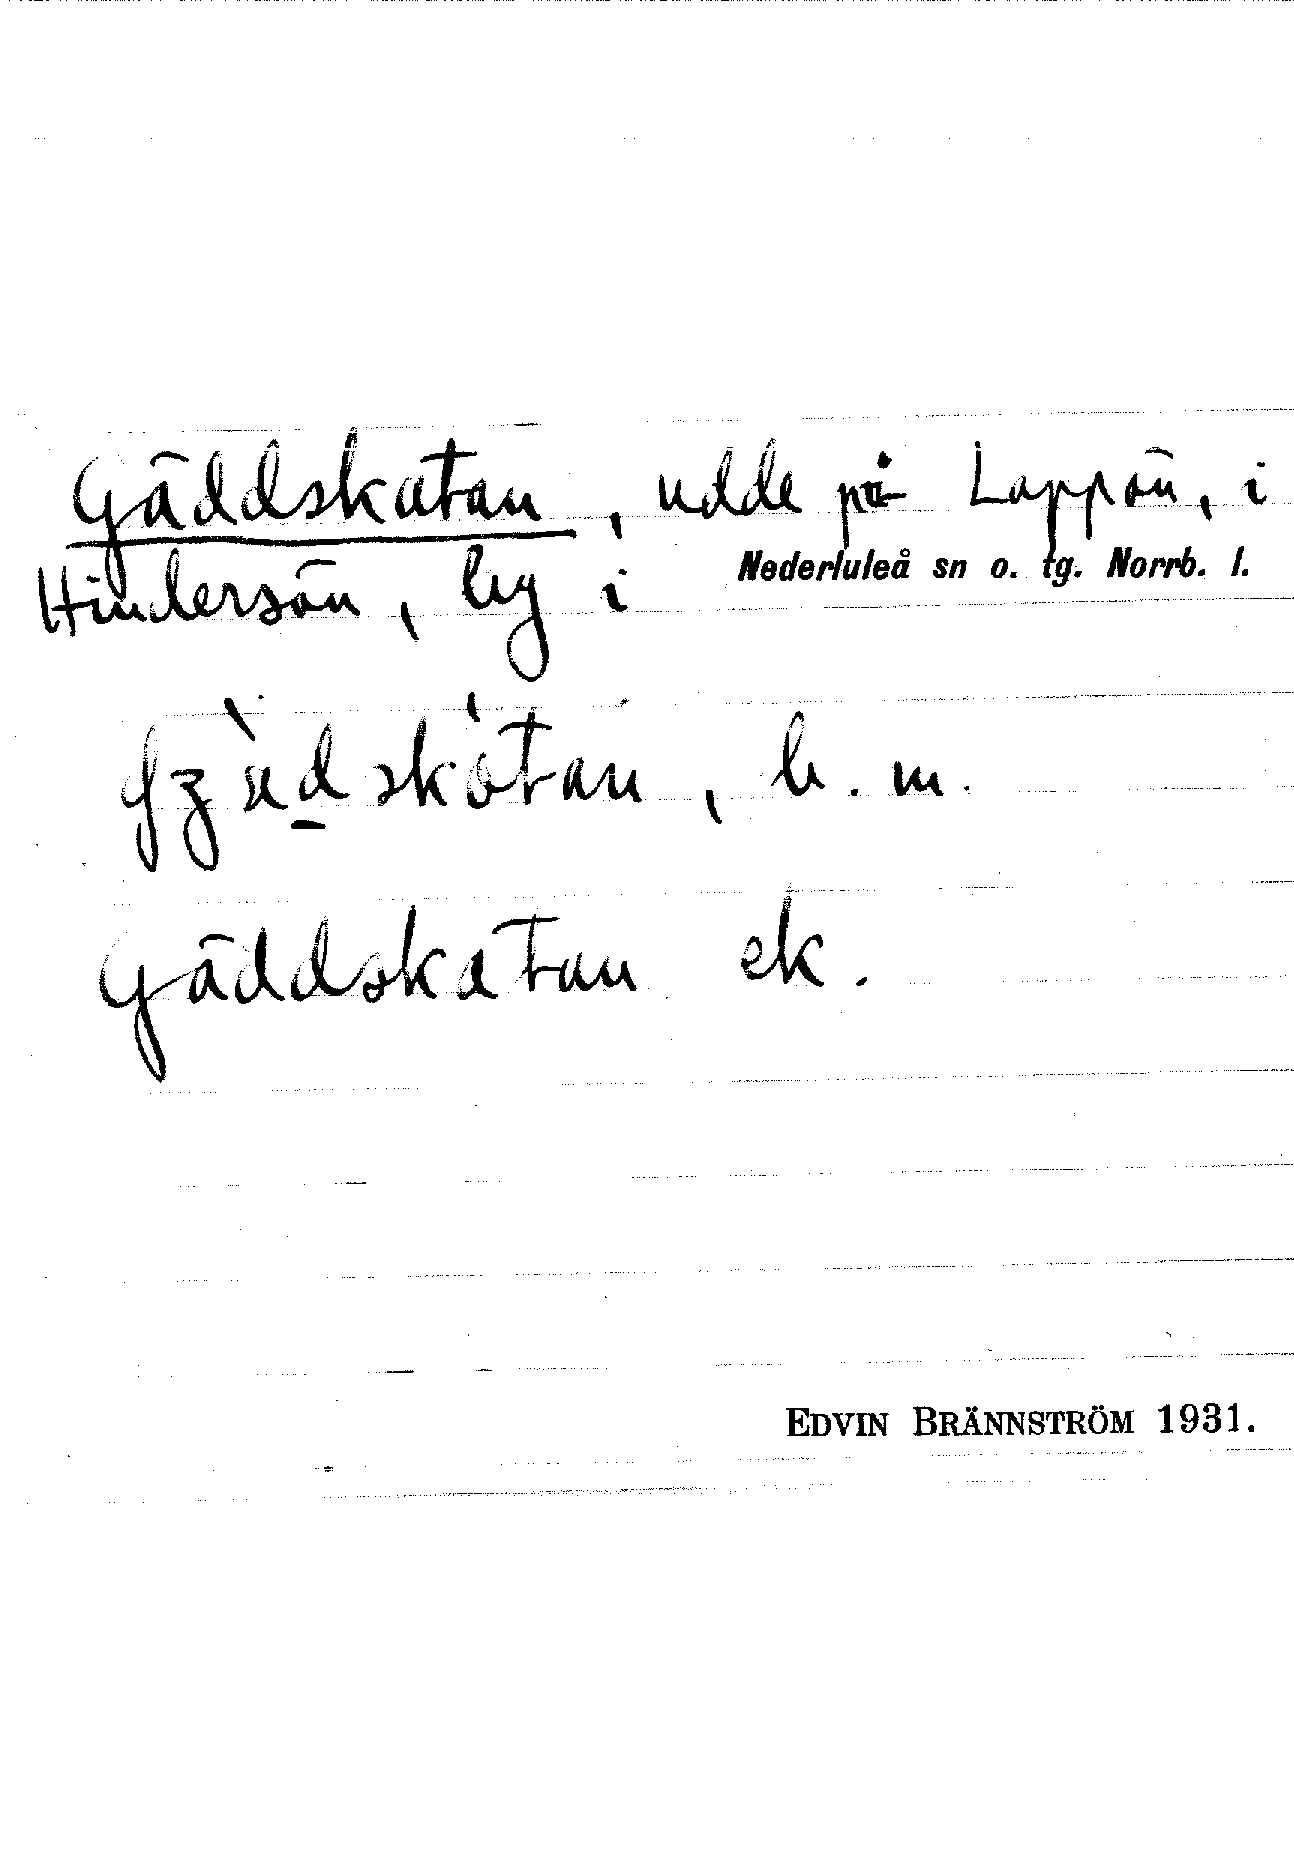 Gäddskatan, udde på Lappön, i
Hindersön, by i Nederluleå sn o. tg. Norrb. l.
b. m.
Gäddskatan ek.
EDVIN BRÄNNSTRÖM 1931.